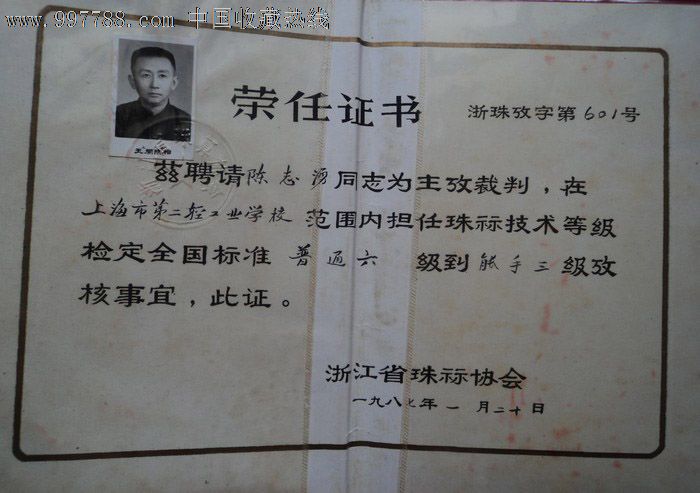 www.997788.com 中国收藏热线
荣任证书
浙珠攷字第601号
兹聘请陈志涌同志为主攷裁判,在
上海市第二轻工业学校 范围内担任珠祘技术等级
检定全国标准 普通六 级到 能手三 级攷
核事宜,此证。
浙江省珠祘协会
一九八七年一月二十日